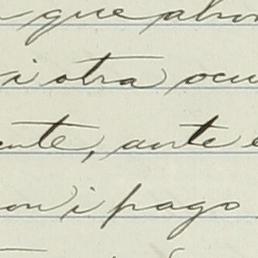 que abon
si otra ocu
ente, ante e
on i pago